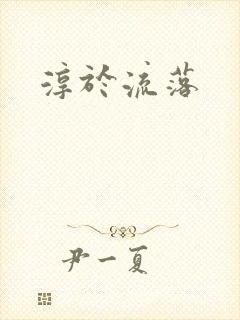 淳於流落
尹一夏